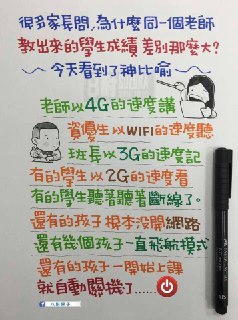 很多家長問,為什麼同一個老師
教出來的學生成績 差別那麼大?
今天看到了神比喻
老師以4G的速度講
資優生以WIFI的速度聽
班長以3G的速度記
有的學生以2G的速度看
有的學生聽著聽著斷線了。
還有的孩子 根本沒開網路
還有幾個孩子一直飛航模式
還有的孩子一開始上課
就自動關機了......